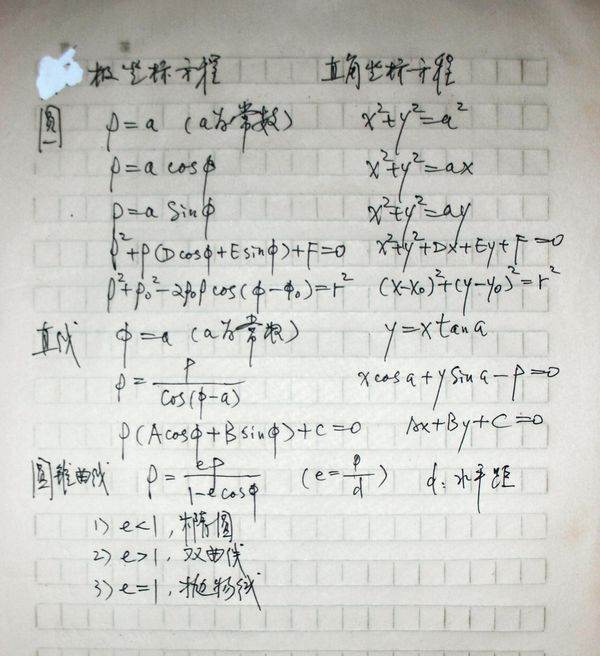 极坐标方程 直角坐标方程
圆 ρ=a (a为常数) x²+y²=a²
ρ=a cosϕ x²+y²=ax
ρ=a Sinϕ x²+y²=ay
ρ²+ρ(Dcosϕ+Esinϕ)+F=0 x²+y²+Dx+Ey+F=0
ρ²+ρ₀²-2ρ₀ρcos(ϕ-ϕ₀)=r² (x-x₀)²+(y-y₀)²=r²
直线 ϕ=a (a为常数) y=xtana
ρ=p/cos(ϕ-a) xcosa+ySina-p=0
ρ(Acosϕ+Bsinϕ)+C=0 Ax+By+C=0
圆锥曲线 ρ=ep/1-ecosϕ (e=ρ/d) d:水平距
1) e<1,椭圆
2) e>1,双曲线
3) e=1,抛物线